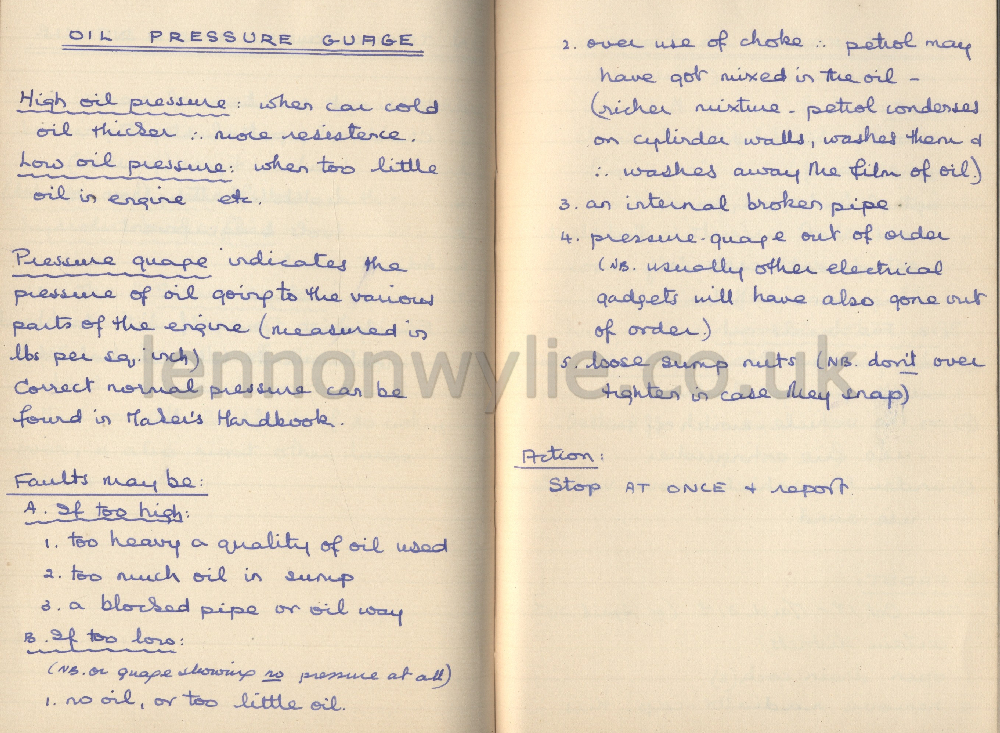 OIL PRESSURE GUAGE
High oil pressure: when car cold
oil thicker ∴ more resistence.
Low oil pressure: when too little
oil in engine etc.
Pressure guage indicates the
pressure of oil going to the various
parts of the engine (measured in
lbs per sq. inch)
Correct normal pressure can be
found in Maker's Handbook.
Faults may be:
A. If too high:
1. too heavy a quality of oil used
2. too much oil in sump
3. a blocked pipe or oil way
B. If too low:
(NB. or guage showing no pressure at all)
1. no oil, or too little oil.
2. over use of choke ∴ petrol may
have got mixed in the oil -
(richer mixture - petrol condenses
on cylinder walls, washes them &
∴ washes away the film of oil)
3. an internal broken pipe
4. pressure-guage out of order
(NB. usually other electrical
gadgets will have also gone out
of order.)
5. loose sump nuts (NB. don't over
tighten in case they snap)
Action:
Stop AT ONCE & report
lennonwylie.co.uk